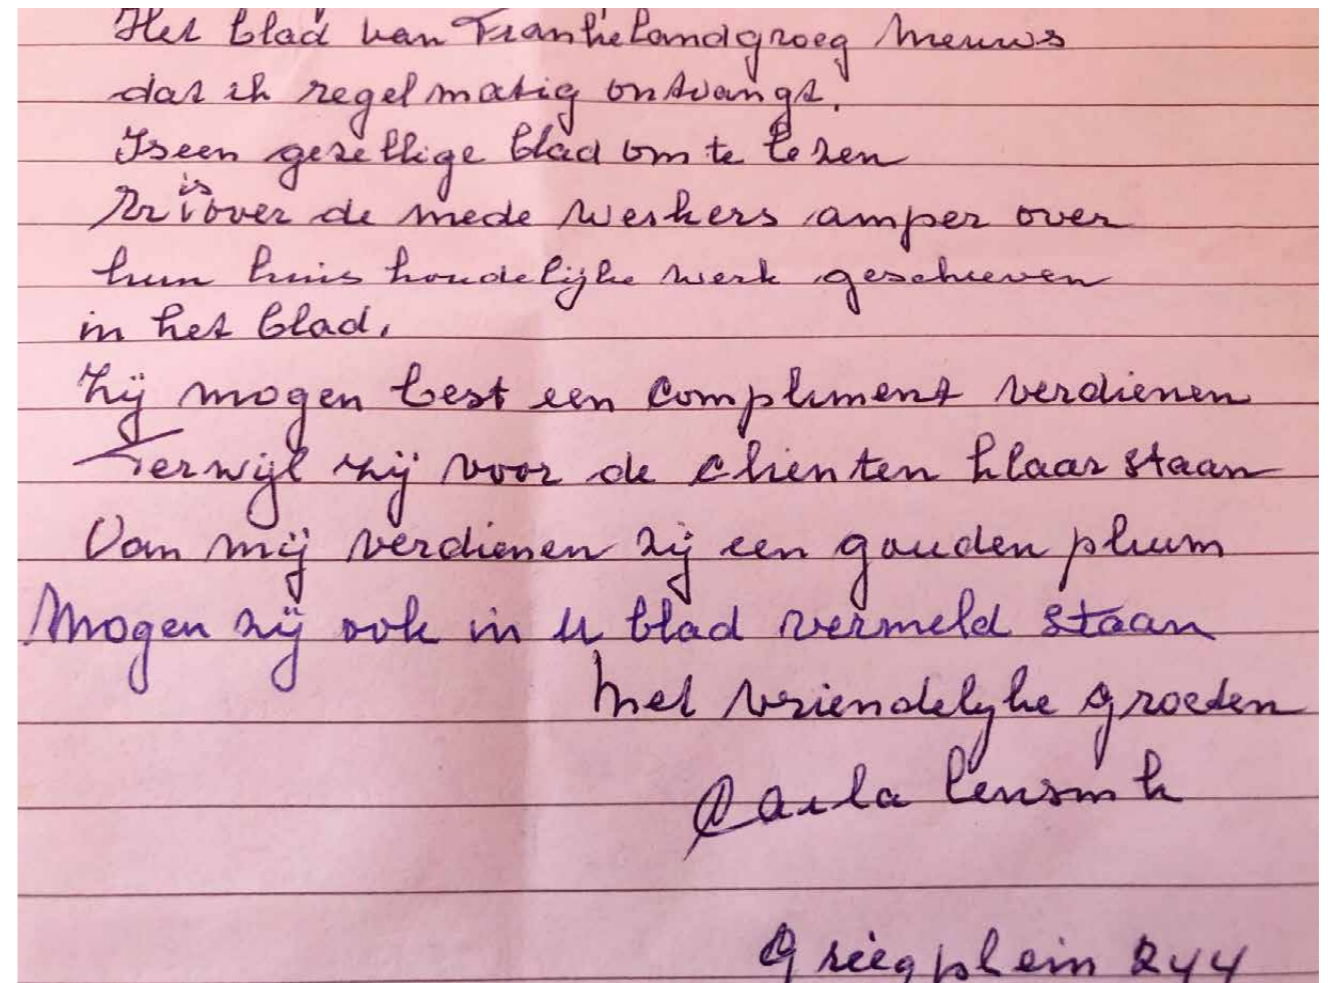 Het blad van Frankelandgroep Nieuws
dat ik regelmatig ontvangt.
Is een gezellige blad om te lezen
Er is over de mede werkers amper over
hun huis houdelijke werk geschreven
in het blad.
Zij mogen best een compliment verdienen
Terwijl zij voor de clienten klaar staan
Van mij verdienen zij een gouden pluim
Mogen zij ook in u blad vermeld staan
Met vriendelijke groeten
Carla Lensink
Griegplein 244